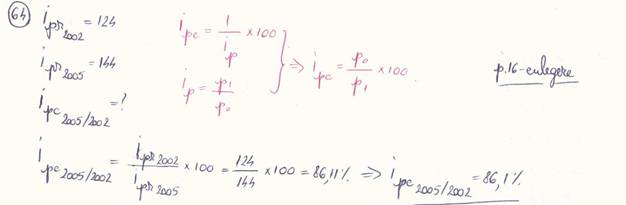 64 i_pr 2002 = 124
i_pr 2005 = 144
i_pc 2005/2002 = ?
i_pc = 1/i_p × 100
i_p = p₁/p₀
⇒ i_pc = p₀/p₁ × 100
p.16-culegere
i_pc 2005/2002 = i_pr 2002/i_pr 2005 × 100 = 124/144 × 100 = 86,11% ⇒ i_pc 2005/2002 = 86,1%